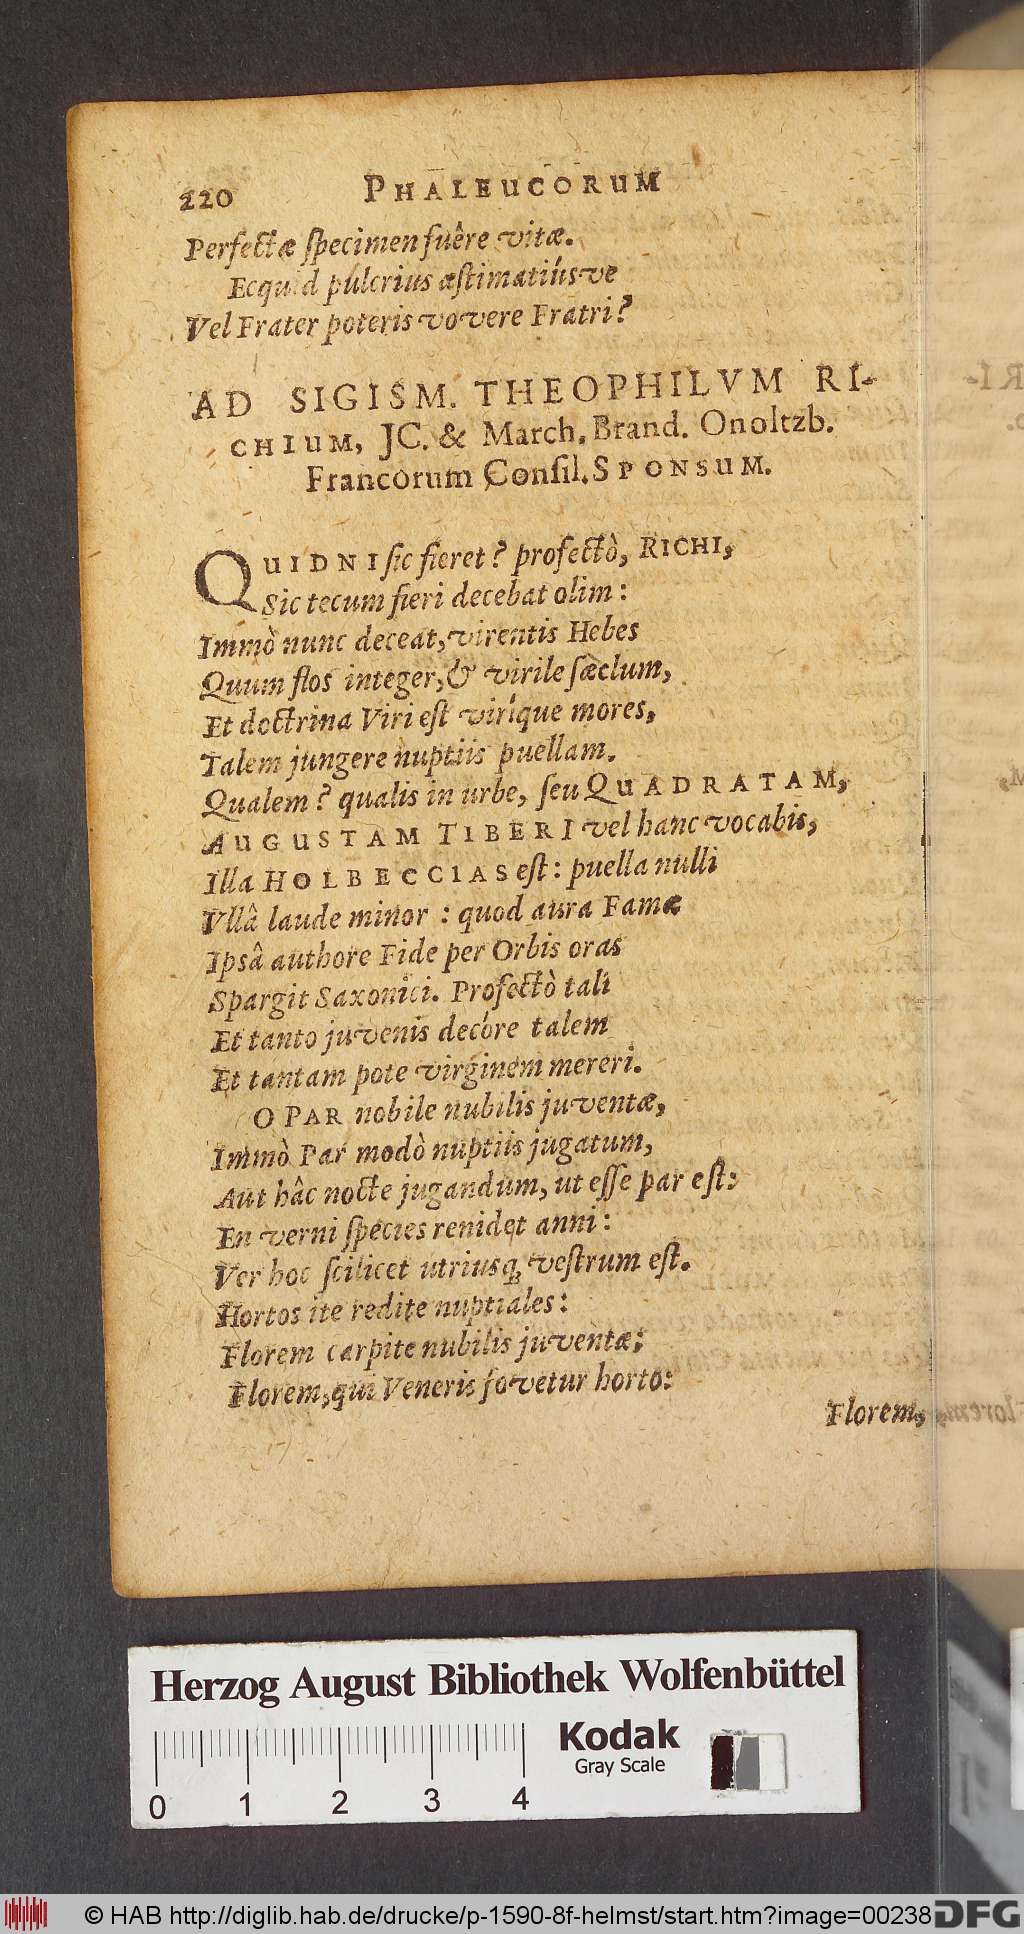 220 PHALEUCORUM
Perfectæ specimen fuêre vitæ.
Ecquid púlcrius æstimatiúsve
Vel Frater poteris vovere Fratri?
AD SIGISM. THEOPHILVM RI-
CHIUM, JC. & March. Brand. Onoltzb.
Francorum Consil. SPONSUM.
QUIDNI sic fieret? profectò, RICHI,
Sic tecum fieri decebat olim:
Immò nunc deceat, virentis Hebes
Quum flos integer, & virile sæclum,
Et doctrina Viri est viríque mores,
Talem jungere nuptiis puellam.
Qualem? qualis in urbe, seu QUADRATAM,
AUGUSTAM TIBERI vel hanc vocabis,
Illa HOLBECCIAS est: puella nulli
Vllâ laude minor: quod aura Famæ
Ipsâ authore Fide per Orbis oras
Spargit Saxonici. Profectò tali
Et tanto juvenis decóre talem
Et tantam pote virginem mereri.
O PAR nobile nubilis juventæ,
Immò Par modò nuptiis jugatum,
Aut hâc nocte jugandum, ut esse par est:
En verni species renidet anni:
Ver hoc scilicet utriusq; vestrum est.
Hortos ite redite nuptiales:
Florem carpite nubilis juventæ:
Florem, qui Veneris fovetur horto:
Florem,
Herzog August Bibliothek Wolfenbüttel
Kodak
Gray Scale
0 1 2 3 4
© HAB http://diglib.hab.de/drucke/p-1590-8f-helmst/start.htm?image=00238
DFG